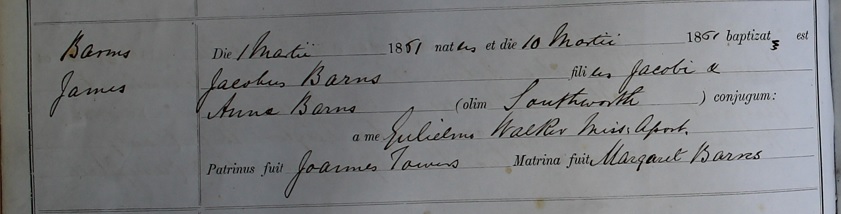 Barns
James
Die 1 Martii 1861 natus et die 10 Martii 1861 baptizat est
Jacobus Barns filius Jacobi &
Anna Barns (olim Southworth) conjugum:
a me Gulielmo Walker Miss: Apost.
Patrinus fuit Joannes Towers Matrina fuit Margaret Barns